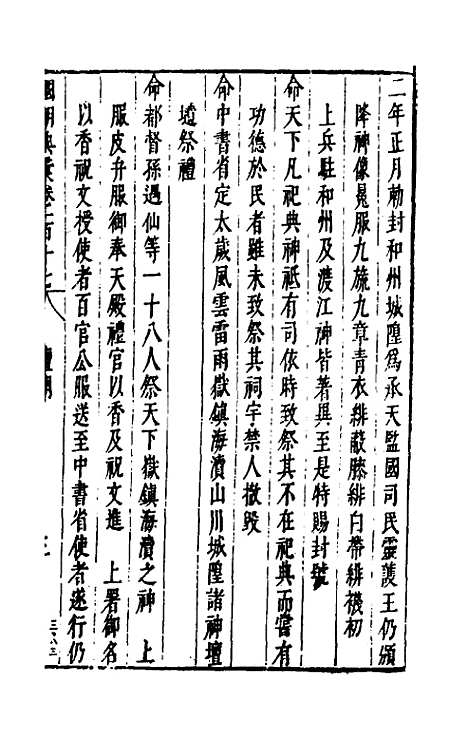 二年正月勑封和州城隍爲承天監國司民靈護王仍頒
降神像冕服九旒九章青衣緋蔽膝緋白帶緋襪初
上兵駐和州及渡江神皆著異至是特賜封號
命天下凡祀典神祇有司依時致祭其不在祀典而嘗有
功德於民者雖未致祭其祠宇禁人撤毀
命中書省定太歲風雲雷雨嶽鎮海瀆山川城隍諸神壇
壝祭禮
命都督孫遇仙等一十八人祭天下嶽鎮海瀆之神 上
服皮弁服御奉天殿禮官以香及祝文進 上署御名
以香祝文授使者百官公服送至中書省使者遂行仍
國朝典彙卷一百十七